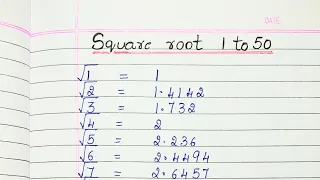 DATE
Square root 1 to 50
√1 = 1
√2 = 1.4142
√3 = 1.732
√4 = 2
√5 = 2.236
√6 = 2.4494
√7 = 2.6457